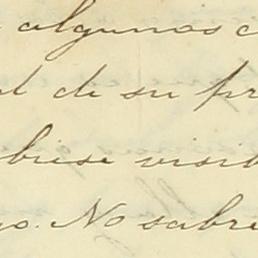 algunos c
l de su pr
biese visib
go. No sabre